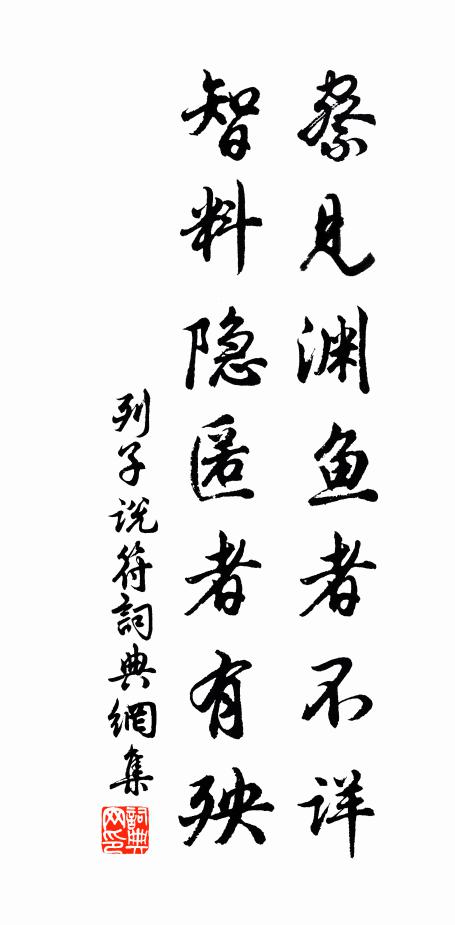 察见渊鱼者不详
智料隐匿者有殃
列子说符詞典網集
詞典
网印